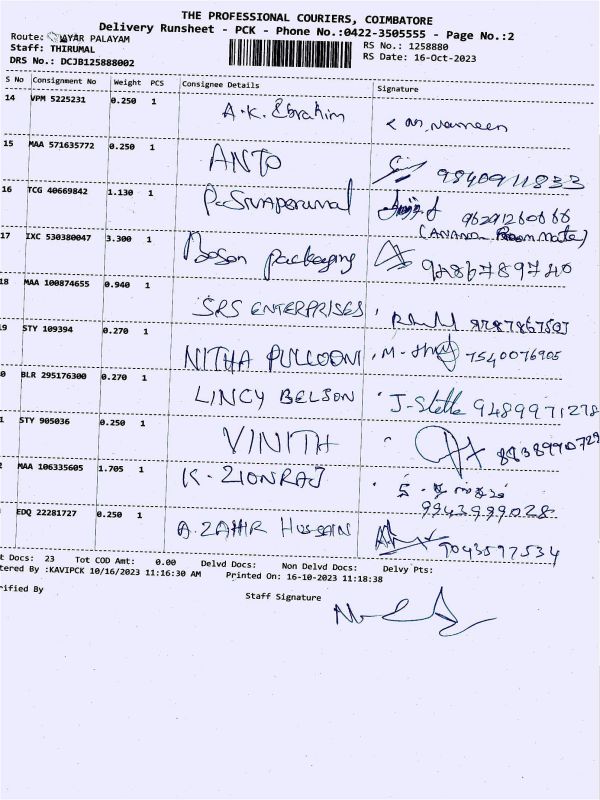 THE PROFESSIONAL COURIERS, COIMBATORE
Delivery Runsheet - PCK - Phone No.:0422-3505555 - Page No.:2
Route: AYAR PALAYAM
RS No.: 1258880
Staff: THIRUMAL
RS Date: 16-Oct-2023
DRS No.: DCJB125888002
S No Consignment No Weight PCS Consignee Details Signature
14 VPM 5225231 0.250 1 A.K. Ebrahim
15 MAA 571635772 0.250 1 ANTO 9840911833
16 TCG 40669842 1.130 1 P. Sivaperumal 96291260666
(ANAND Room mate)
17 IXC 530380047 3.300 1 Boson packaging 9486789740
18 MAA 100874655 0.940 1 SRS ENTERPRISES
19 STY 109394 0.270 1 NITHA PULLOONI 7540076905
0 BLR 295176300 0.270 1 LINCY BELSON J-Stella 9489971278
1 STY 905036 0.250 1 VINITH 8838990729
2 MAA 106335605 1.705 1 K. ZIONRAJ
9943999028
EDQ 22281727 0.250 1 A. ZAHIR HUSSAIN 9043597534
t Docs: 23 Tot COD Amt: 0.00 Delvd Docs: Non Delvd Docs: Delvy Pts:
tered By :KAVIPCK 10/16/2023 11:16:30 AM Printed On: 16-10-2023 11:18:38
rified By Staff Signature